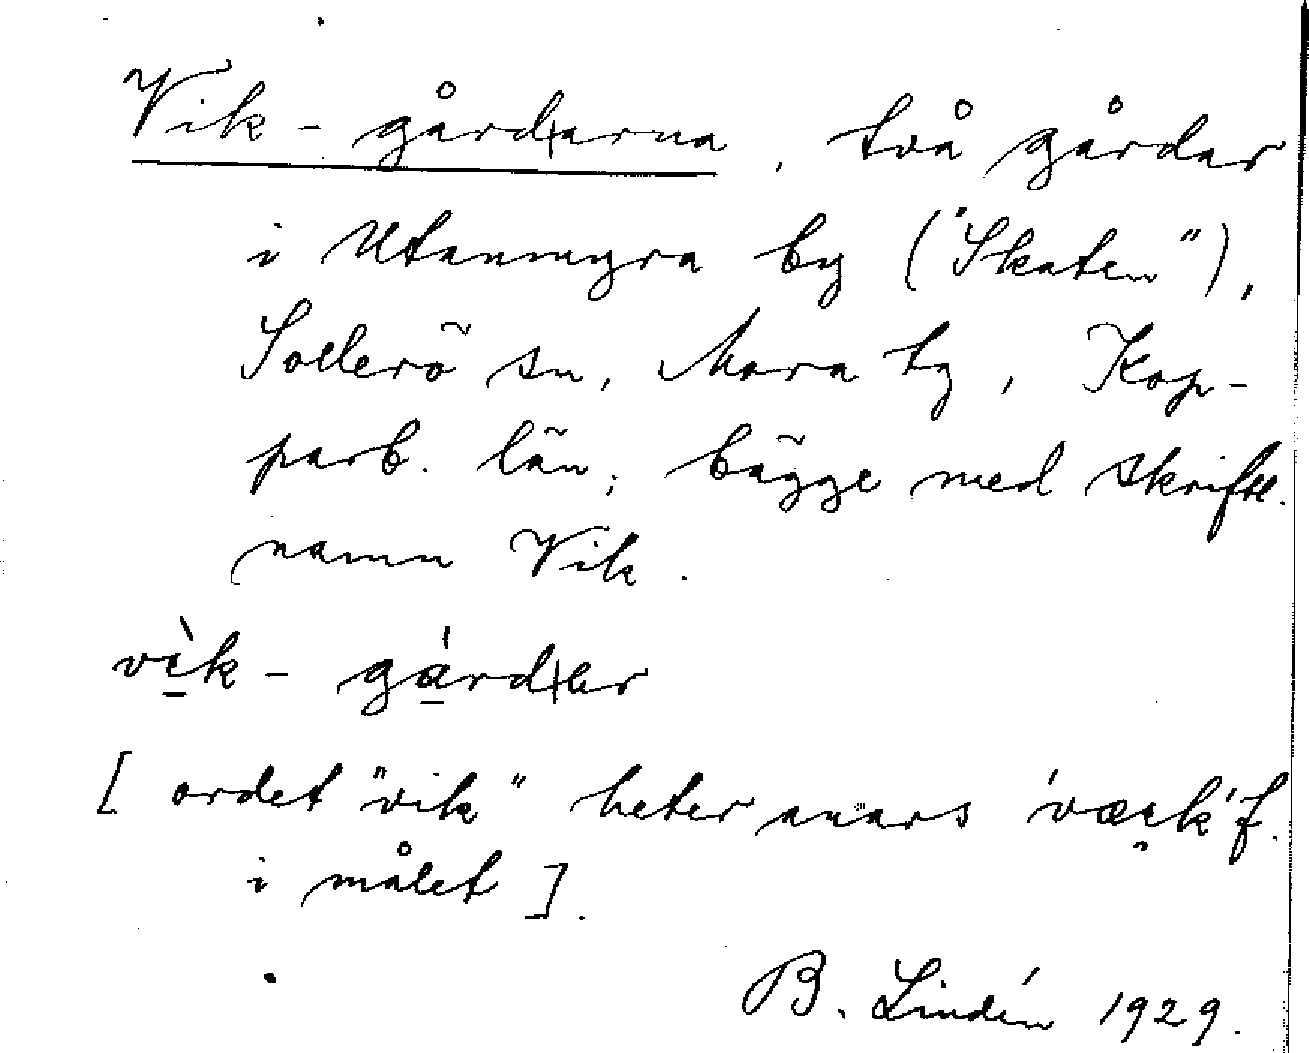 Vik-gårdarna, två gårdar
i Utanmyra by ("Skaten"),
Sollerö sn, Mora tg, Kop-
parb. län; bägge med skriftl.
namn Vik.
vìk-gárder
[ordet "vik" heter anars 'væik' f.
i målet].
B. Lindén 1929.